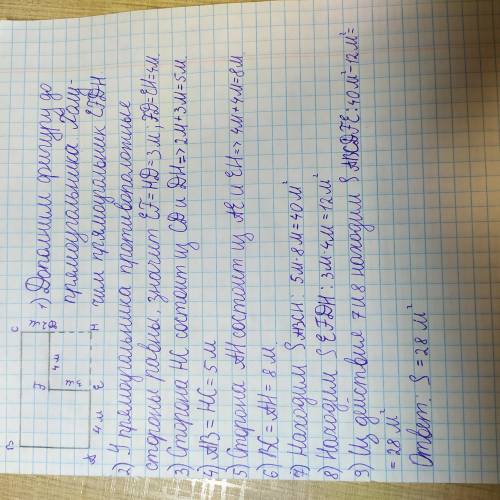 B
C
F
D
4м
A
4 м
E
H
1) Дополним фигуру до
прямоугольника. Полу-
чим прямоугольник EFDH
2) У прямоугольника противоположные
стороны равны, значит EF=HD=3м; FD=EH=4м.
3) Сторона HC состоит из CD и DH=> 2м+3м=5м.
4) AB=HC=5м
5) Сторона AH состоит из AE и EH=> 4м+4м=8м
6) BC=AH=8м.
7) Находим S ABCH: 5м·8м=40м²
8) Находим S EFDH: 3м·4м=12м²
9) Из действия 7 и 8 находим S ABCDFE: 40м²-12м²=
=28 м²
Ответ: S=28 м²